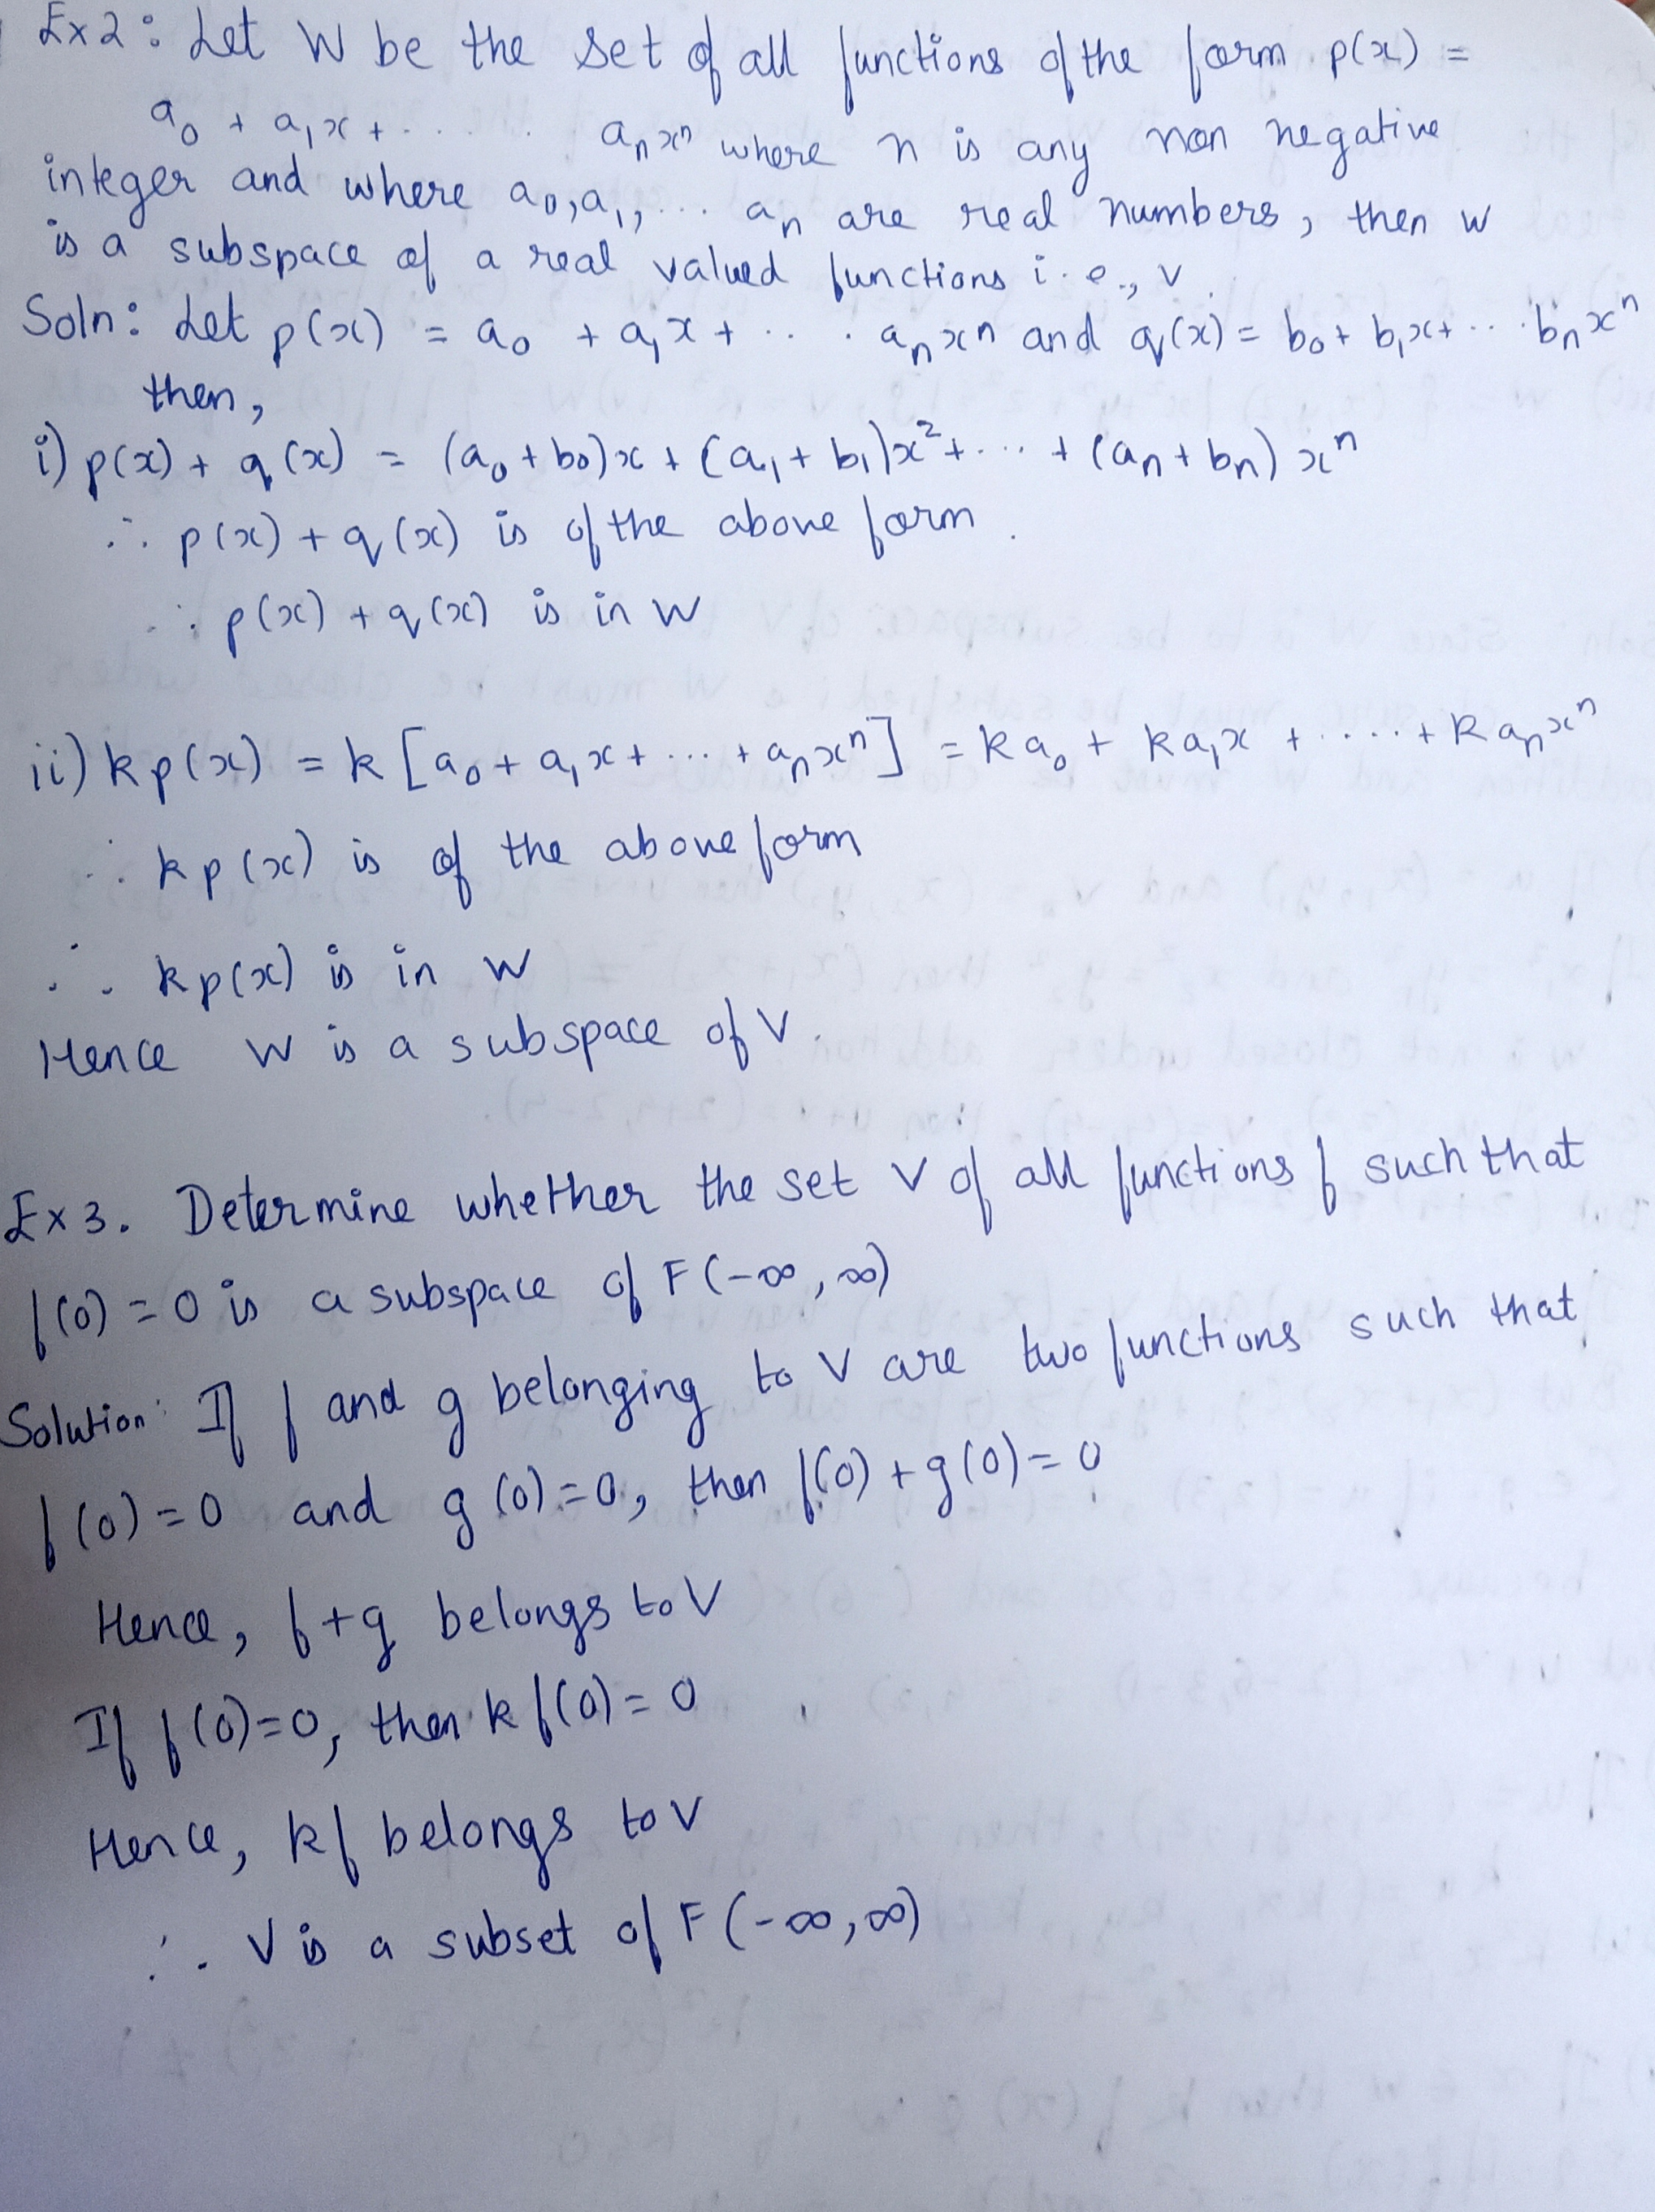 Ex2: Let W be the set of all functions of the form p(x) =
a₀ + a₁x + . . . . . aₙxⁿ where n is any non negative
integer and where a₀, a₁, ... aₙ are real numbers, then W
is a subspace of a real valued functions i.e., V.
Soln: Let p(x) = a₀ + a₁x + . . . aₙxⁿ and q(x) = b₀ + b₁x + ... bₙxⁿ
then,
i) p(x) + q(x) = (a₀ + b₀)x + (a₁ + b₁)x² + ... + (aₙ + bₙ)xⁿ
∴ p(x) + q(x) is of the above form.
∴ p(x) + q(x) is in W
ii) kp(x) = k[a₀ + a₁x + ... + aₙxⁿ] = ka₀ + ka₁x + ..... + kaₙxⁿ
∴ kp(x) is of the above form
∴ kp(x) is in W
Hence W is a subspace of V.
Ex3. Determine whether the set V of all functions f such that
f(0) = 0 is a subspace of F(-∞, ∞)
Solution: If f and g belonging to V are two functions such that
f(0) = 0 and g(0) = 0, then f(0) + g(0) = 0
Hence, f+g belongs to V
If f(0) = 0, then k f(0) = 0
Hence, kf belongs to V
∴ V is a subset of F(-∞, ∞)